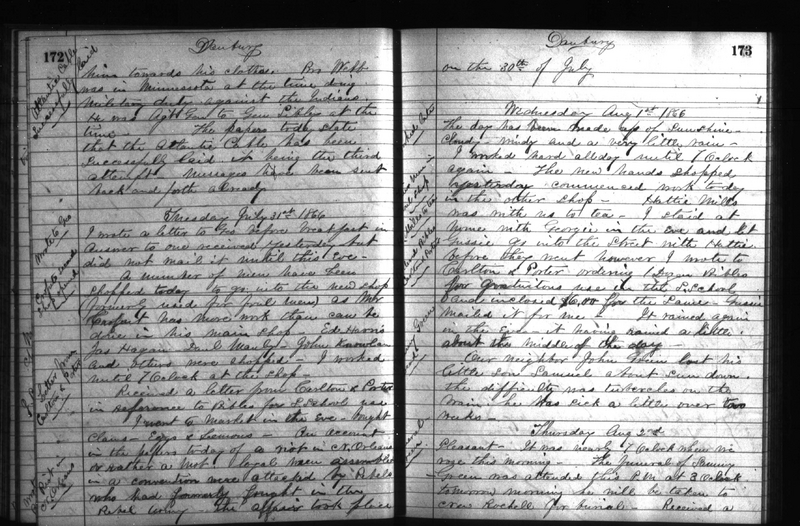 172
Danbury
Atlantic Cable
Successfully laid
him towards his clothes. Bro Webb
was in Minnesota at the time doing
Military duty against the Indians.
He was Agt Gen to Gen Sibley at the
time — The papers today state
that the Atlantic Cable has been
successfully laid it being the third
attempt. Messages have been sent
back and forth already
Tuesday July 31st 1866
Wrote to Geo
I wrote a letter to Geo before breakfast in
answer to one received yesterday but
did not mail it until this Eve —
A number of new men have been
shopped today to go into the new shop
used for foul men) as Mr
has more work than can be
done in his main shop — Ed Harris
Jas Hagan Danl Manly — John Knowlan
and others were shopped — I worked
until 7 Oclock at the shop —
Letter from
Carlton & Porter
Received a letter from Carlton & Porter
in reference to Bibles for S School use
I went to Market in the Eve — bought
Clams — Eggs & Lemons — An account
Riot in
N. Orleans
in the papers today of a riot in N. Orleans
or rather a lot loyal men assembled
in a convention were attacked by Rebels
who had formerly fought in the
Rebel army — The affair took place
Danbury
173
on the 30th of July
Wednesday Aug 1st 1866
The day has been made up of Sunshine —
Cloud — windy and a very little rain —
I worked hard all day until 7 Oclock
again — The new hands shopped
yesterday commenced work today
in the other shop — Hattie Mills
was with us to tea — I staid at
home with Georgie in the Eve and let
Gussie go into the Street with Hattie.
Before they went however I wrote to
Carlton & Porter ordering 1 dozen Bibles
for gratuitous use in the S. School
and inclosed $6.00 for the same — Gussie
mailed it for me — It rained again
in the Eve — it having rained a little
about the middle of the day —
Our neighbor John Green lost his
little Son Samuel about Sun down
the difficulty was tubercles on the
brain he was sick a little over two
weeks —
Thursday Aug 2nd
Pleasant — It was nearly 7 Oclock when we
rose this morning — The funeral of Sammy
Green was attended this P.M. at 3 Oclock
tomorrow morning he will be taken to
New Rochelle for burial — Received a